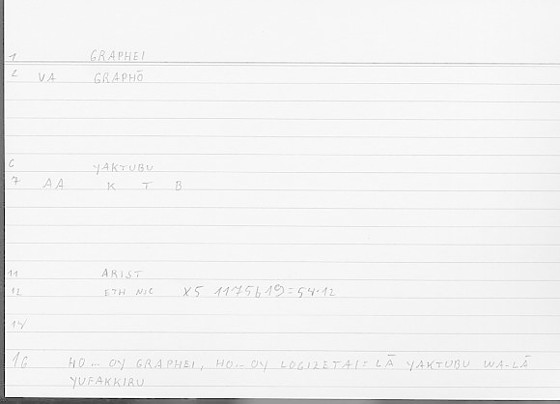 1 GRAPHEI
2 VA GRAPHŌ
6 YAKTUBU
7 AA K T B
11 ARIST
12 ETH NIC X5 1175b19=54.12
14
16 HO... OY GRAPHEI, HO... OY LOGIZETAI= LĀ YAKTUBU WA-LĀ
YUFAKKIRU